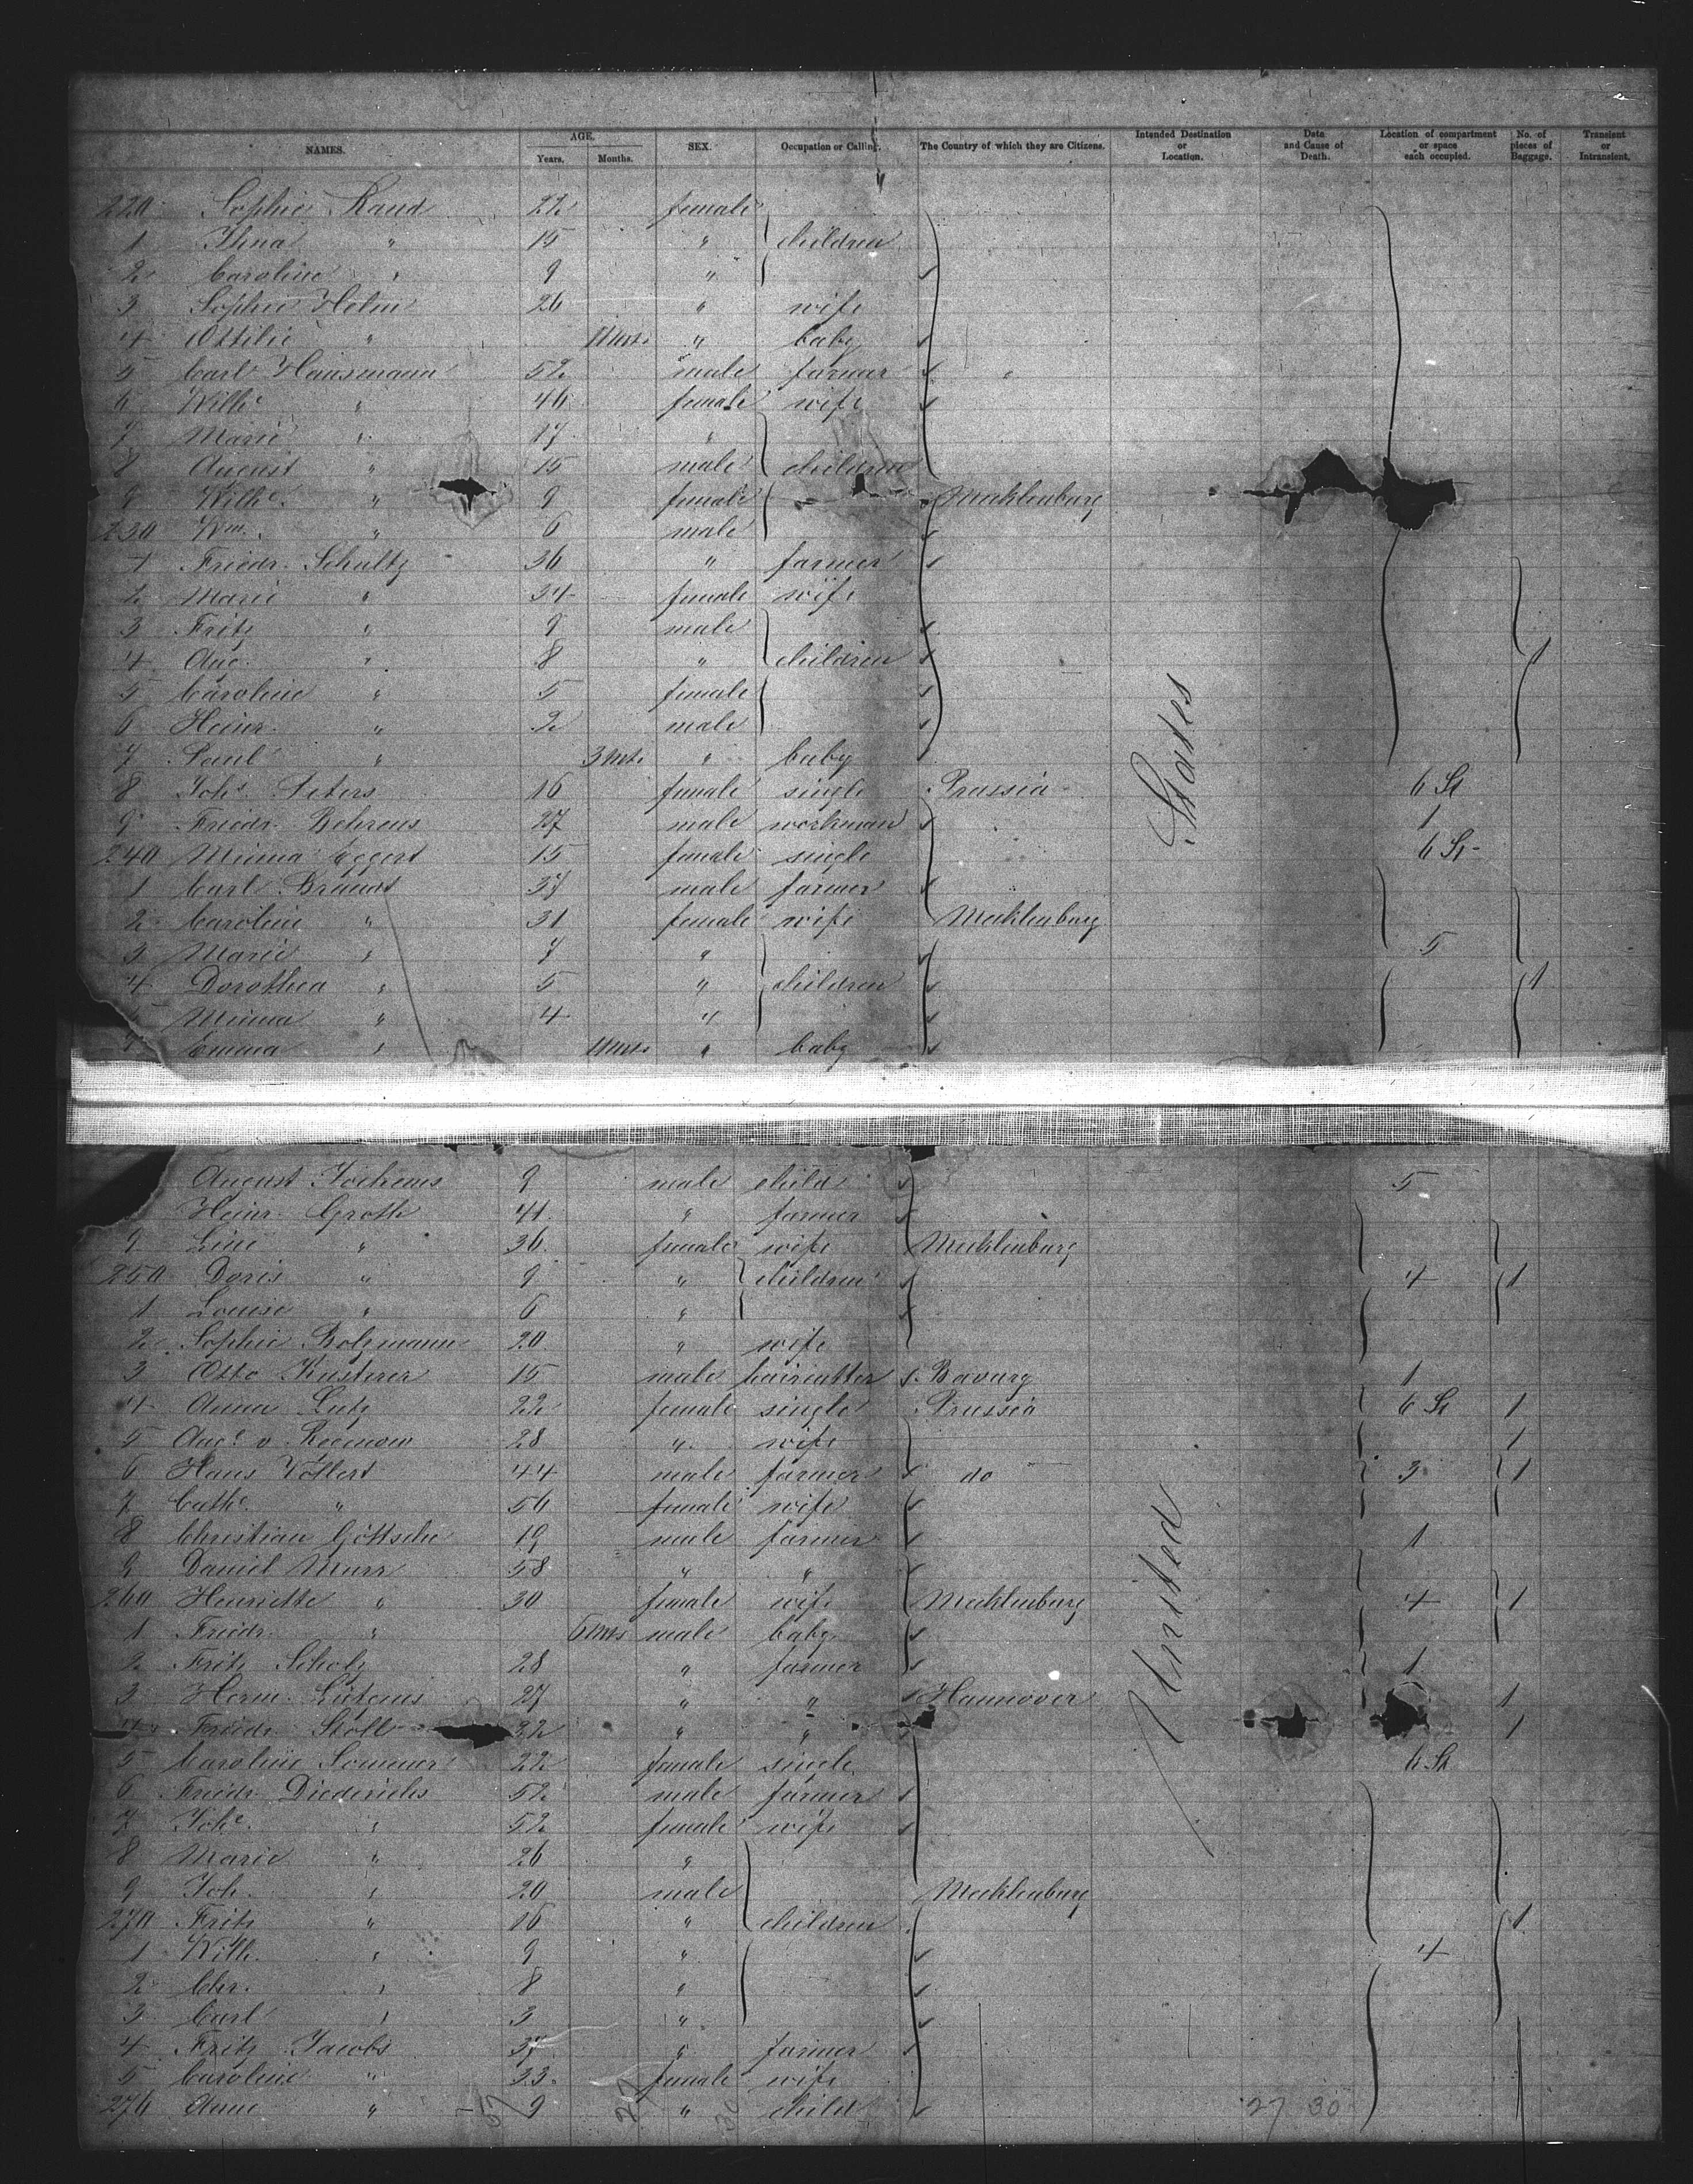 NAMES. AGE. Years. Months. SEX. Occupation or Calling. The Country of which they are Citizens. Intended Destination or Location. Date and Cause of Death. Location of compartment or space each occupied. No. of pieces of Baggage. Transient or Intransient.
220 Sophie Raud 22 female
1 " 15 " children
2 Caroline " 9 "
3 Sophie Helm 26 " wife
4 Ottilie " 11 mts " baby
5 Carl Hausmann 52 male farmer
6 Wilhe " 46 female wife
7 Marie " 17 "
8 August " 15 male children
9 Wilhe. " 9 female Mecklenburg
230 Wm. " 6 male
1 Friedr. Schultz 36 " farmer
2 Marie " 34 female wife
3 Fritz " 9 male
4 Aug. " 8 " children 1
5 Caroline " 5 female
6 Heinr. " 2 male
7 Paul " 3 mts " baby
8 Johe. Peters 16 female single Prussia 6 St
9 Friedr. Behrens 27 male workman 1
240 Minna Eggert 15 female single 6 St
1 Carl Brandt 37 male farmer
2 Caroline " 31 female wife Mecklenburg
3 Marie " 7 " 5
4 Dorothea " 5 " children 1
Minna " 4 "
Emma " 11 mts " baby
States
August Jochems 9 male child 5
Heinr. Groth 41 " farmer
9 Line " 36 female wife Mecklenburg
250 Doris " 9 " children 4 1
1 Louise " 6 "
2 Sophie Bolzmann 20 " wife
3 Otto Kusterer 15 male haircutter 1
4 Anna Lutz 22 female single Prussia 6 St 1
5 Auge. v. 28 " wife 1
6 Hans Vollert 44 male farmer do 3 1
7 Cathe. " 56 female wife
8 Christian Göttsche 19 male farmer 1
9 Daniel Murr 58 " "
260 Henriette " 30 female wife Mecklenburg 4 1
1 Friedr. " 6 mts male baby
2 Fritz Scholz 28 " farmer 1
3 Herm. Lütjens 27 " " Hannover 1
4 Friedr. Stoll 22 " " 1
5 Caroline Sommer 22 female single 6 St
6 Friedr. Diederichs 52 male farmer
7 Johe. " 52 female wife
8 Marie " 26 "
9 Joh. " 20 male Mecklenburg
270 Fritz " 16 " children 1
1 Wilh. " 9 " 4
2 Chr. " 8 "
3 Carl " 3 "
4 Fritz Jacobs 37 " farmer
5 Caroline " 33 female wife
276 Anne " 9 " child 27 30
United